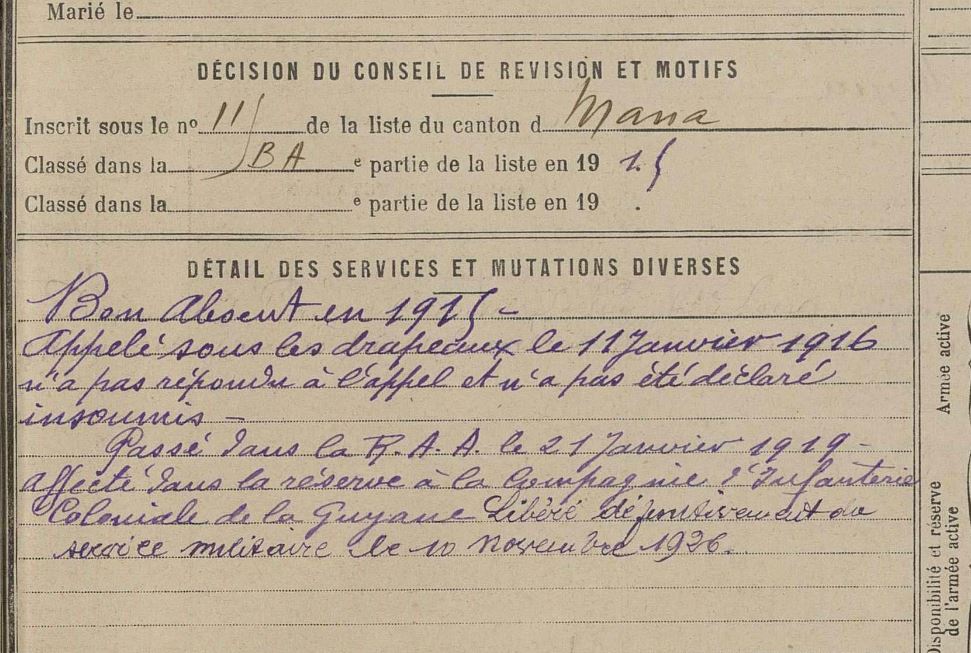 Marié le
DÉCISION DU CONSEIL DE REVISION ET MOTIFS
Inscrit sous le nº 11 de la liste du canton d Mana
Classé dans la BA e partie de la liste en 19 15
Classé dans la e partie de la liste en 19 .
DÉTAIL DES SERVICES ET MUTATIONS DIVERSES
Bon Absent en 1915 -
Appelé sous les drapeaux le 11 Janvier 1916
n'a pas répondu à l'appel et n'a pas été déclaré
insoumis -
Passé dans la R. A. A. le 21 Janvier 1919 -
affecté dans la réserve à la Compagnie d'Infanterie
Coloniale de la Guyane Libéré définitivement du
service militaire le 10 novembre 1926.
Armée active
Disponibilité et réserve
de l'armée active